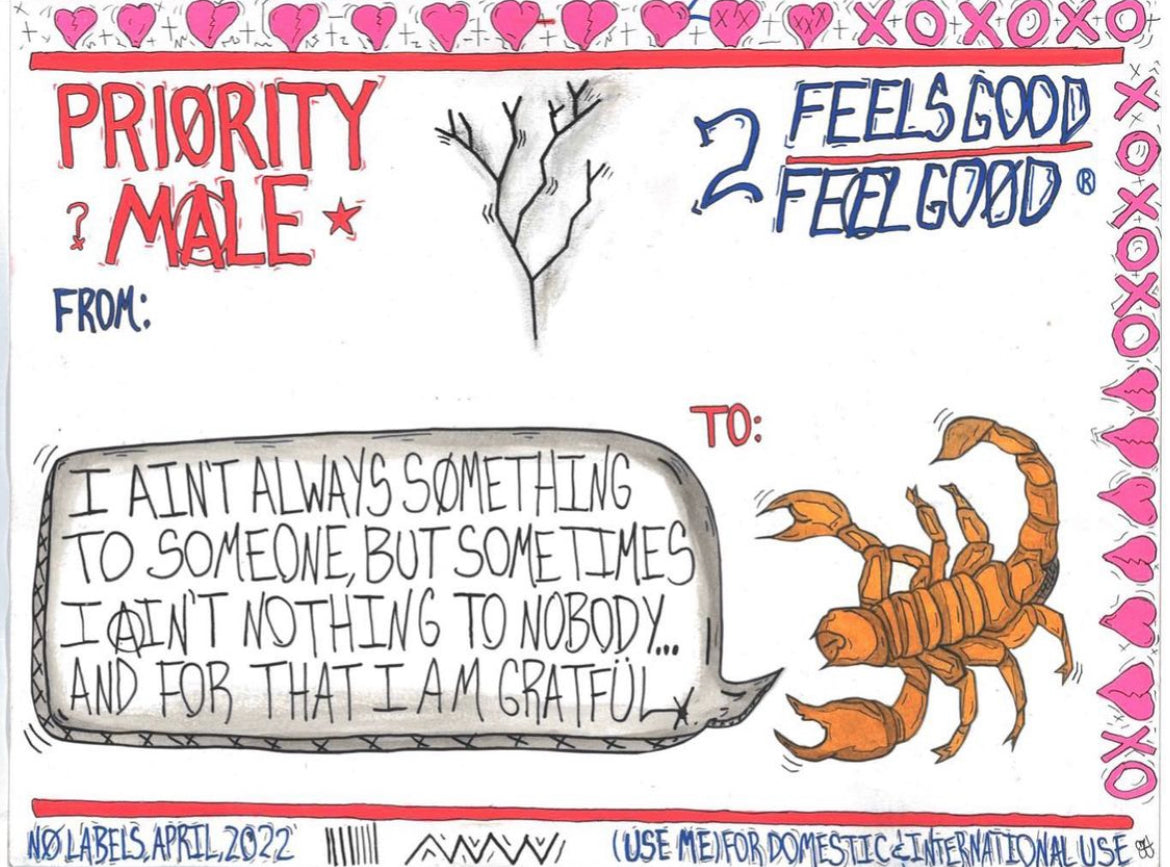 XXX XXX XOXOXO
PRIØRITY
? MALE ★
FROM:
2 FEELS GOOD
FEEL GOØD ®
XOXOXO
TO:
I AIN'T ALWAYS SØMETHING
TO SOMEONE, BUT SOMETIMES
I AIN'T NOTHING TO NOBODY...
AND FOR THAT I AM GRATFÜL
XO
NØ LABELS, APRIL, 2022
(USE ME) FOR DOMESTIC & INTERNATIONAL USE